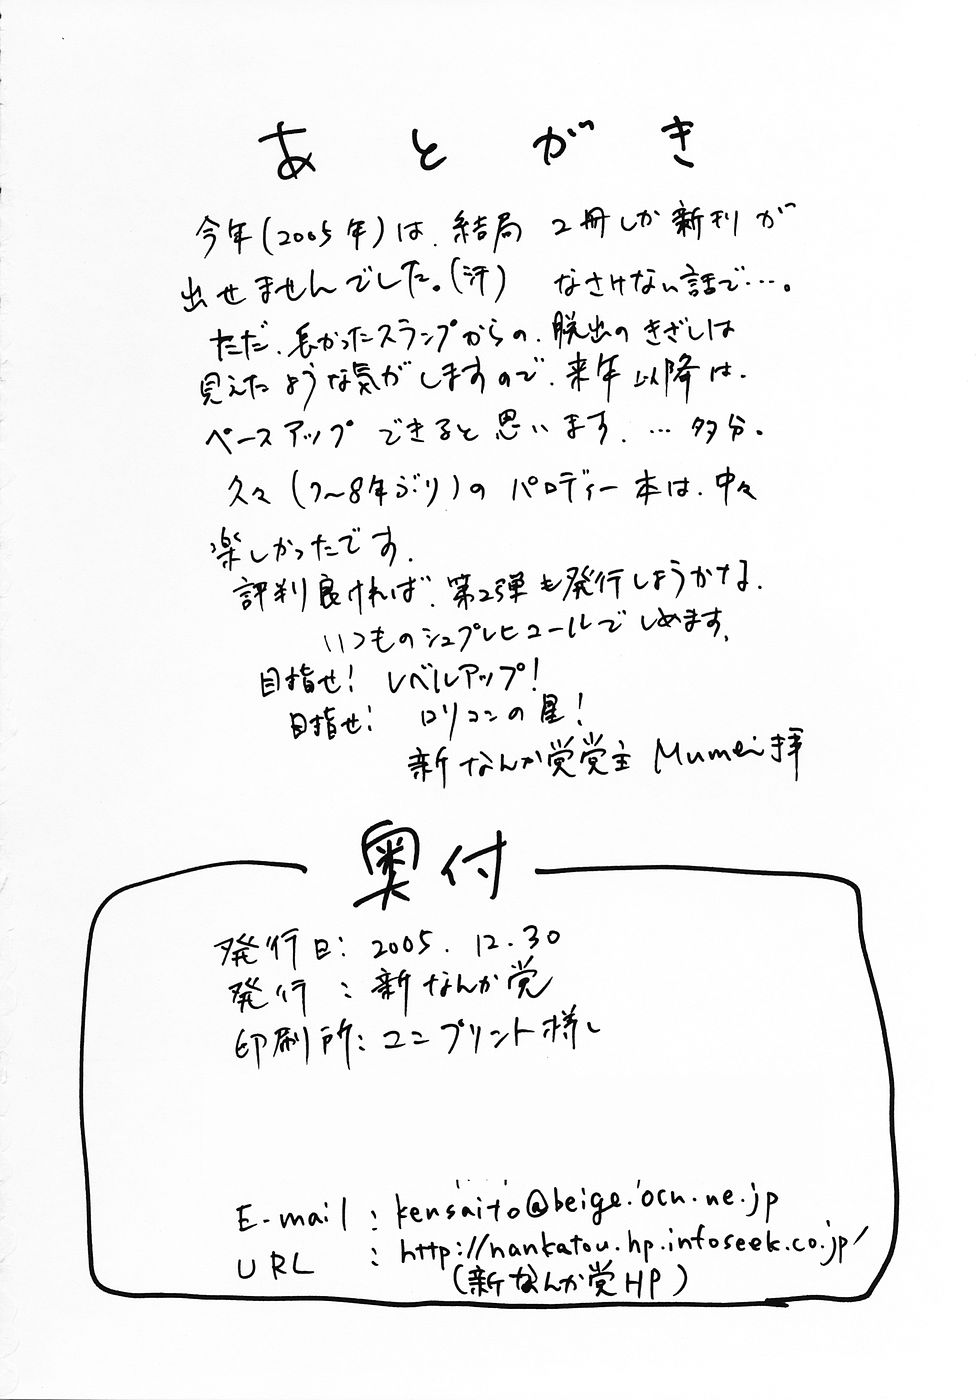 あとがき
今年(2005年)は、結局 2冊しか新刊が
出せませんでした。(汗) なさけない話で…。
ただ、長かったスランプからの、脱出のきざしは
見えたような気がしますので、来年以降は、
ペースアップできると思います、…多分。
久々(7~8年ぶり)のパロディー本は、中々
楽しかったです。
評判良ければ、第2弾も発行しようかな。
いつものシュプレヒコールでしめます。
目指せ! レベルアップ!
目指せ! ロリコンの星!
新なんか党党主 Mumei拝
奥付
発行日: 2005.12.30
発行 : 新なんか党
印刷所: ユニプリント様
E-mail : kensaito@beige.ocn.ne.jp
URL : http://nankatou.hp.infoseek.co.jp/
(新なんか党HP)